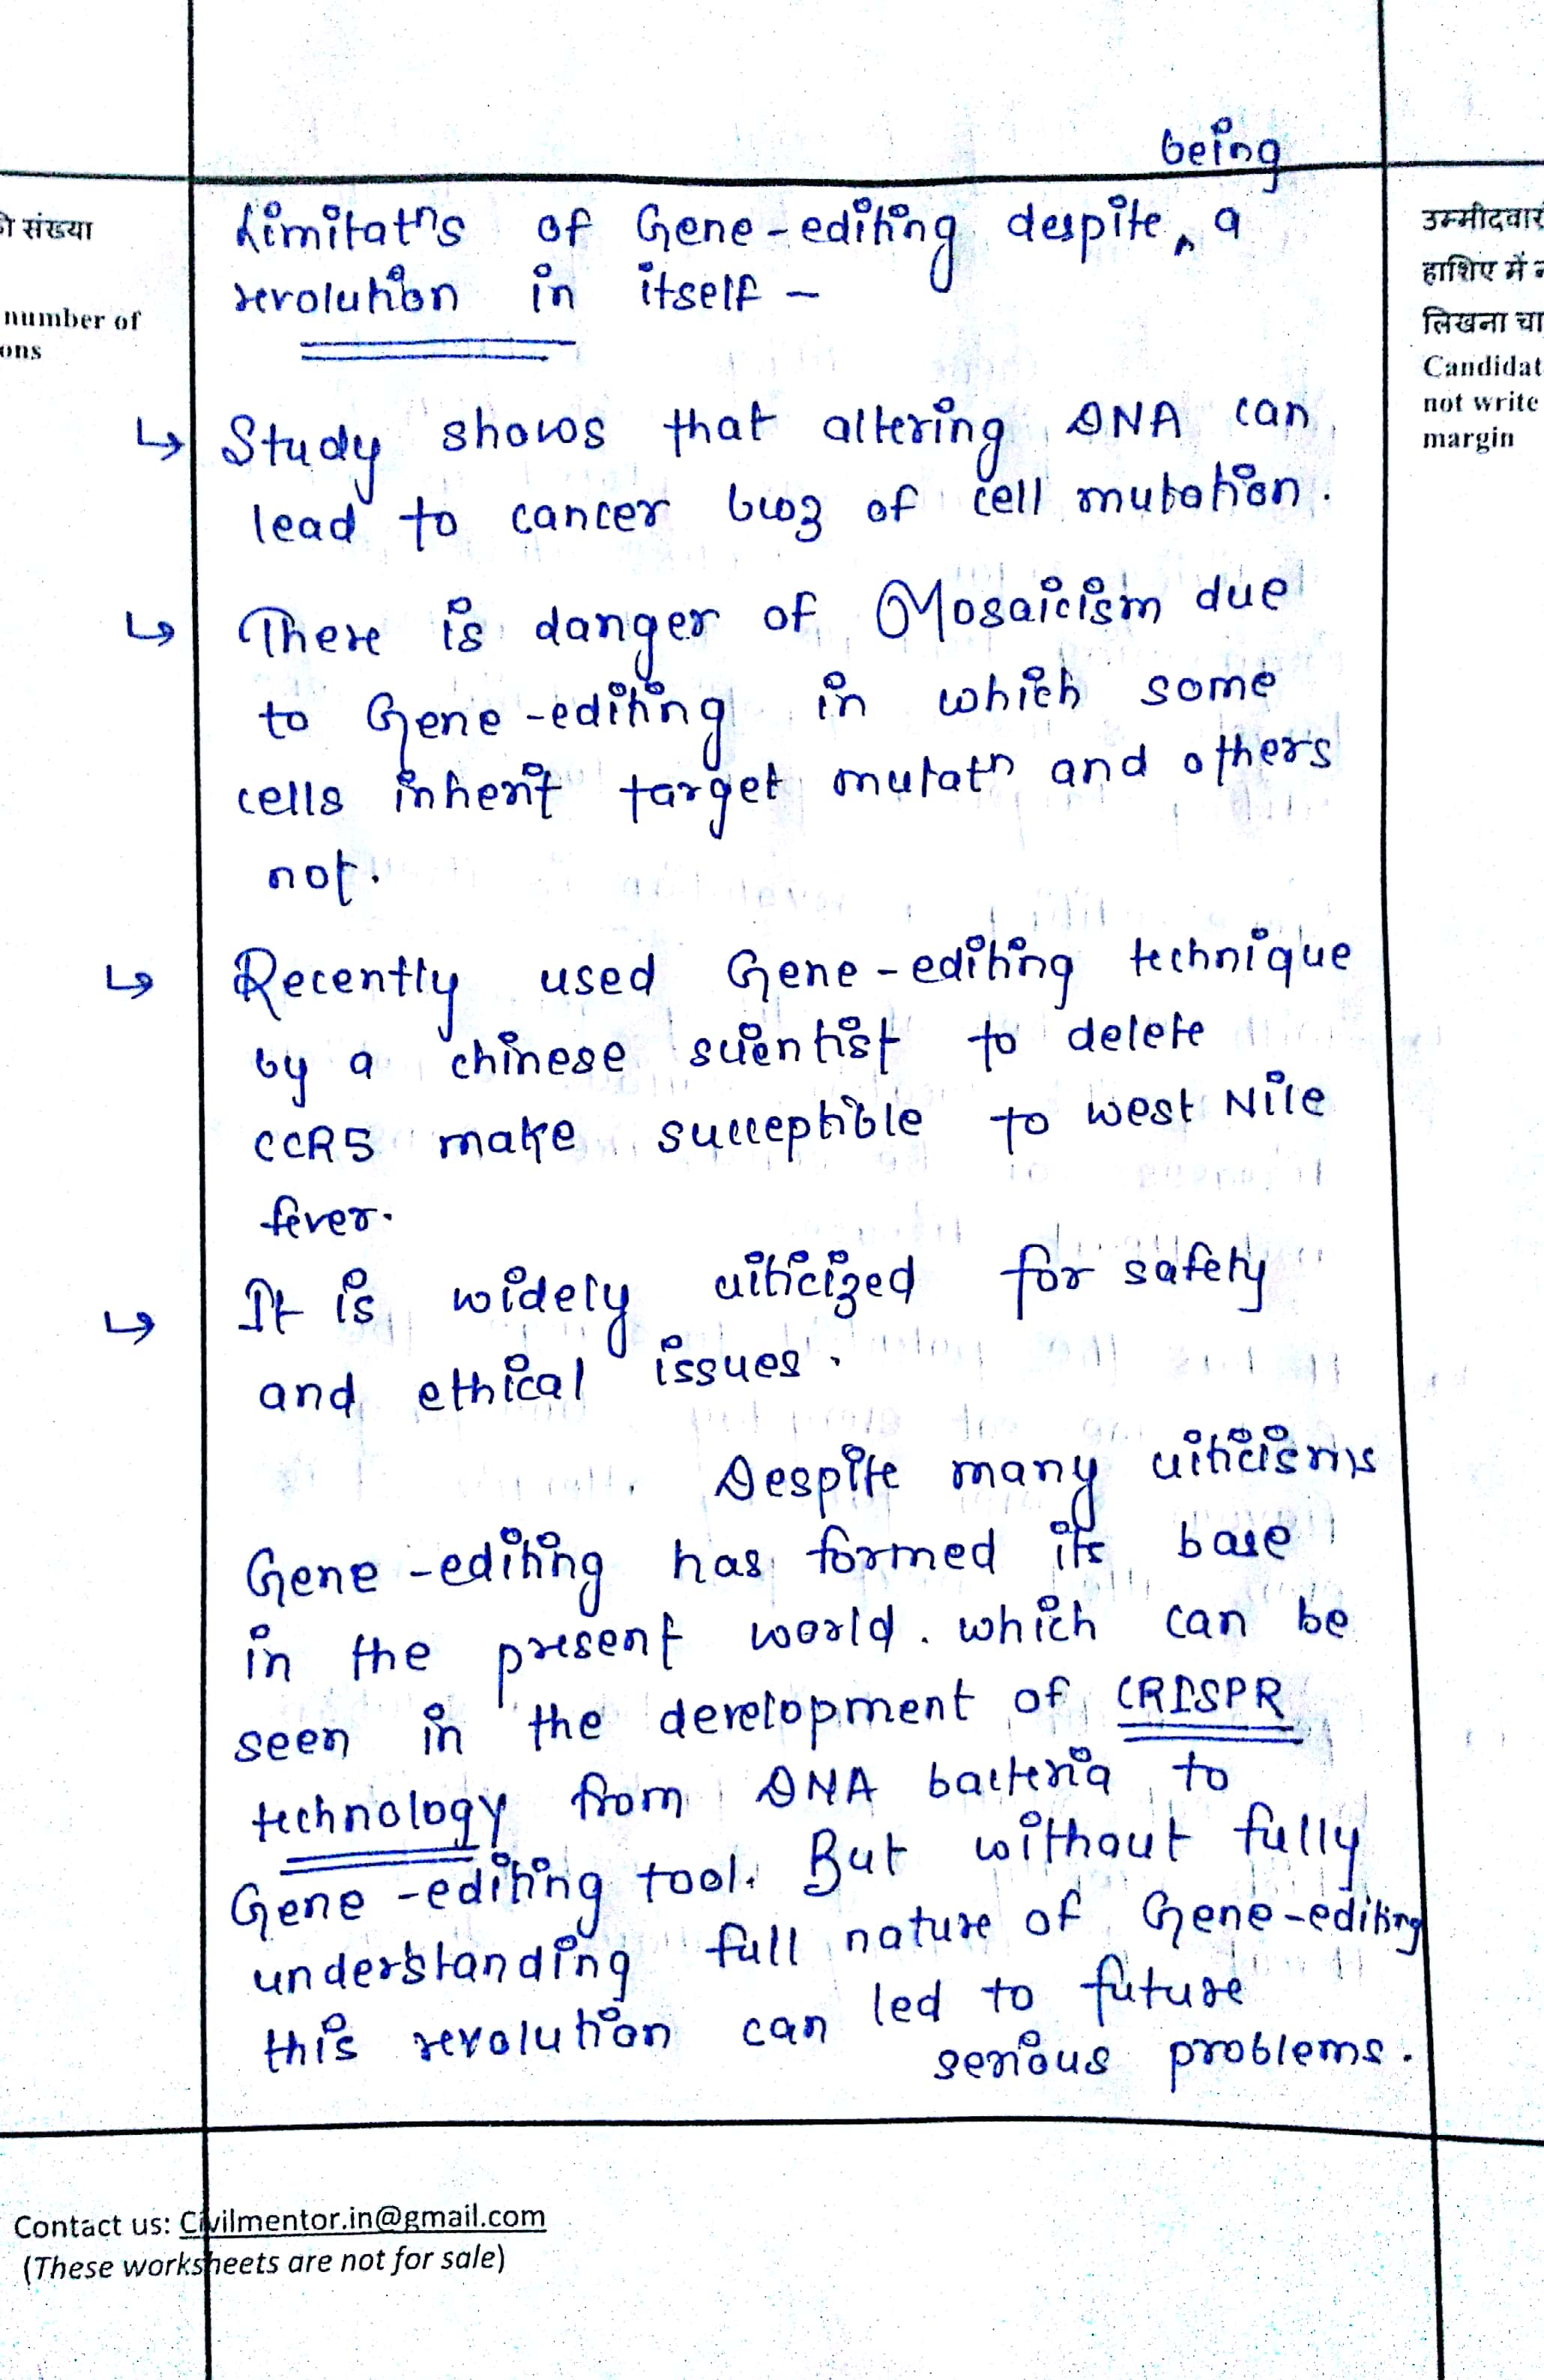 being
Limitatⁿs of Gene-editing despite ^ a
revolution in itself –
ी संख्या
number of
ons
उम्मीदवार
हाशिए में न
लिखना चा
Candidat
not write
margin
↳ Study shows that altering DNA can
lead to cancer bcoz of cell mutation.
↳ There is danger of Mosaicism due
to Gene-editing in which some
cells inherit target mutatⁿ and others
not.
↳ Recently used Gene-editing technique
by a chinese scientist to delete
CCR5 make succeptible to west Nile
fever.
↳ It is widely criticized for safety
and ethical issues.
Despite many criticisms
Gene-editing has formed its base
in the present world. which can be
seen in the development of CRISPR
technology from DNA bacteria to
Gene-editing tool. But without fully
understanding full nature of Gene-editing
this revolution can led to future
serious problems.
Contact us: Civilmentor.in@gmail.com
(These worksheets are not for sale)